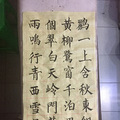 兩個黄鸝
鳴翠柳一
行白鷺上
青天窗含
西岭千秋
雪門泊東